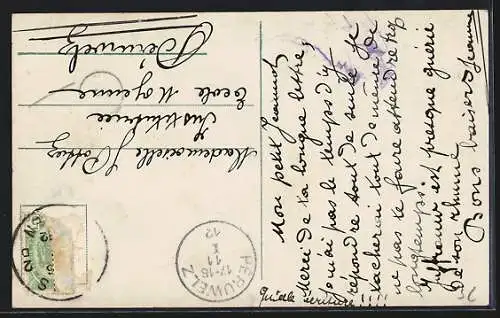 Mademoiselle J. Pottiez
Institutrice
Ecole Moyenne
Péruwelz
Mon petit Jeannot
Merci de ta longue lettre,
je n'ai pas le temps d'y
répondre tout de suite. Je
tâcherai tout de même de
ne pas te faire attendre trop
longtemps.
est presque guérie
de son rhume
Bons baisers Jeanne
Quelle écriture!!!!
PERUWELZ
17-18
11
X
12